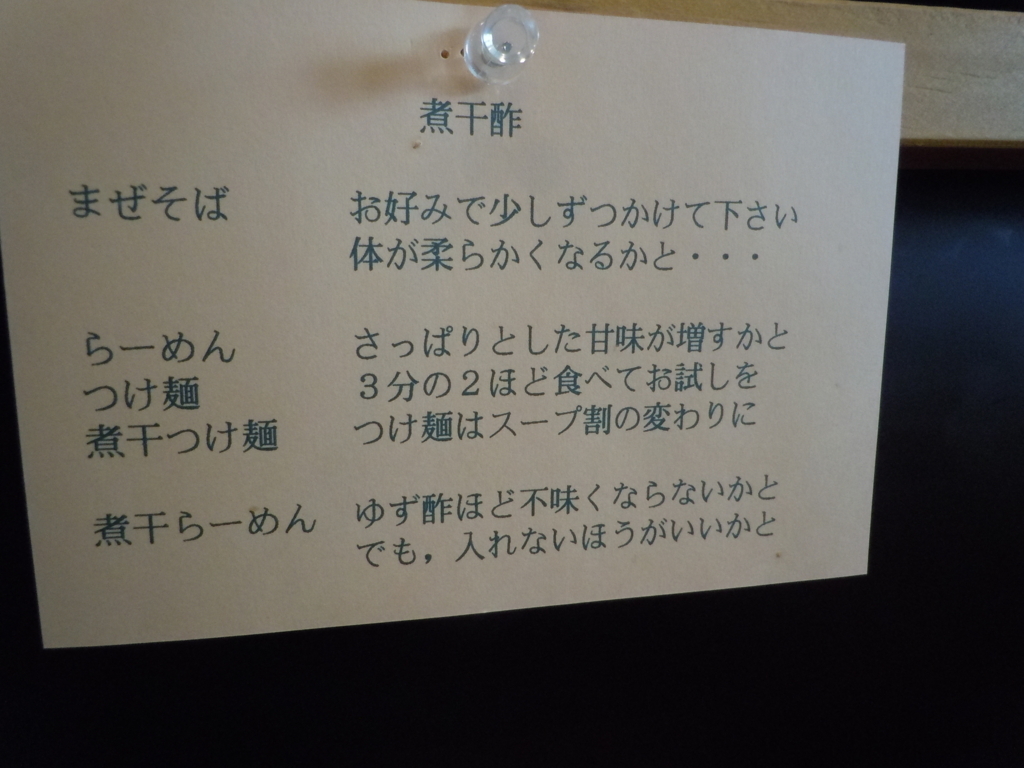 煮干酢
まぜそば　お好みで少しずつかけて下さい
体が柔らかくなるかと・・・
らーめん　さっぱりとした甘味が増すかと
つけ麺　３分の２ほど食べてお試しを
煮干つけ麺　つけ麺はスープ割の変わりに
煮干らーめん　ゆず酢ほど不味くならないかと
でも，入れないほうがいいかと